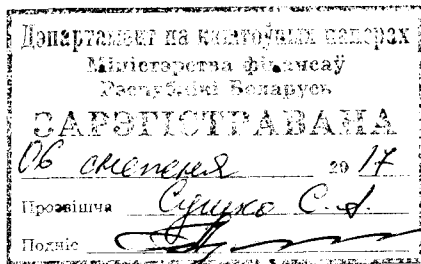 Дэпартамент па каштоўных паперах
Міністэрства фінансаў
Рэспублікі Беларусь
ЗАРЭГІСТРАВАНА
06 студзеня 2017
Прозвішча С. А.
Подпіс